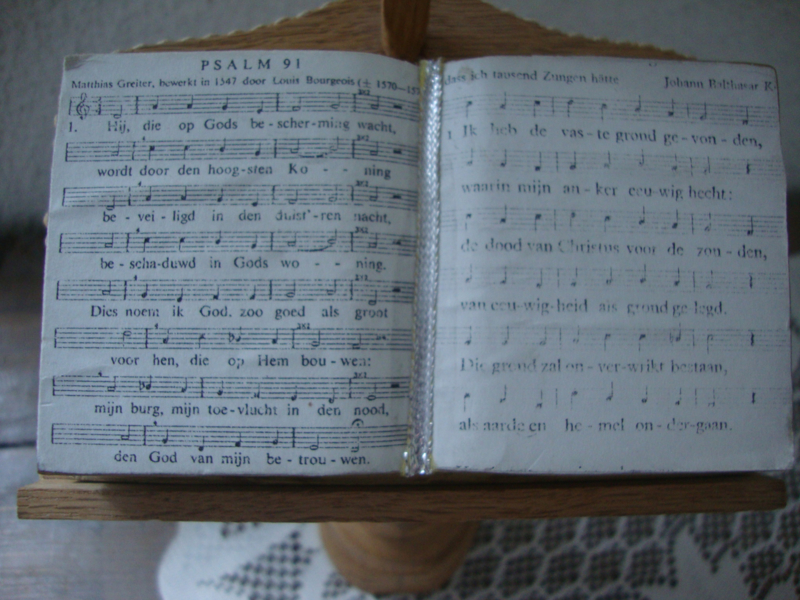 PSALM 91
Matthias Greiter, bewerkt in 1547 door Louis Bourgeois (± 1570—157
1. Hij, die op Gods be - scher-ming wacht,
wordt door den hoog-sten Ko - - ning
be - vei - ligd in den duist'-ren nacht,
be - scha-duwd in Gods wo - - ning.
Dies noem ik God, zoo goed als groot
voor hen, die op Hem bou - wen:
mijn burg, mijn toe-vlucht in den nood,
den God van mijn be - trou - wen.
dass ich tausend Zungen hätte Johann Balthasar K
1. Ik heb de vas - te grond ge - von - den,
waarin mijn an - ker eeu-wig hecht:
de dood van Christus voor de zon - den,
van eeu-wig-heid als grond ge-legd.
Die grond zal on - ver-wrikt bestaan,
als aarde en he - mel on - der-gaan.